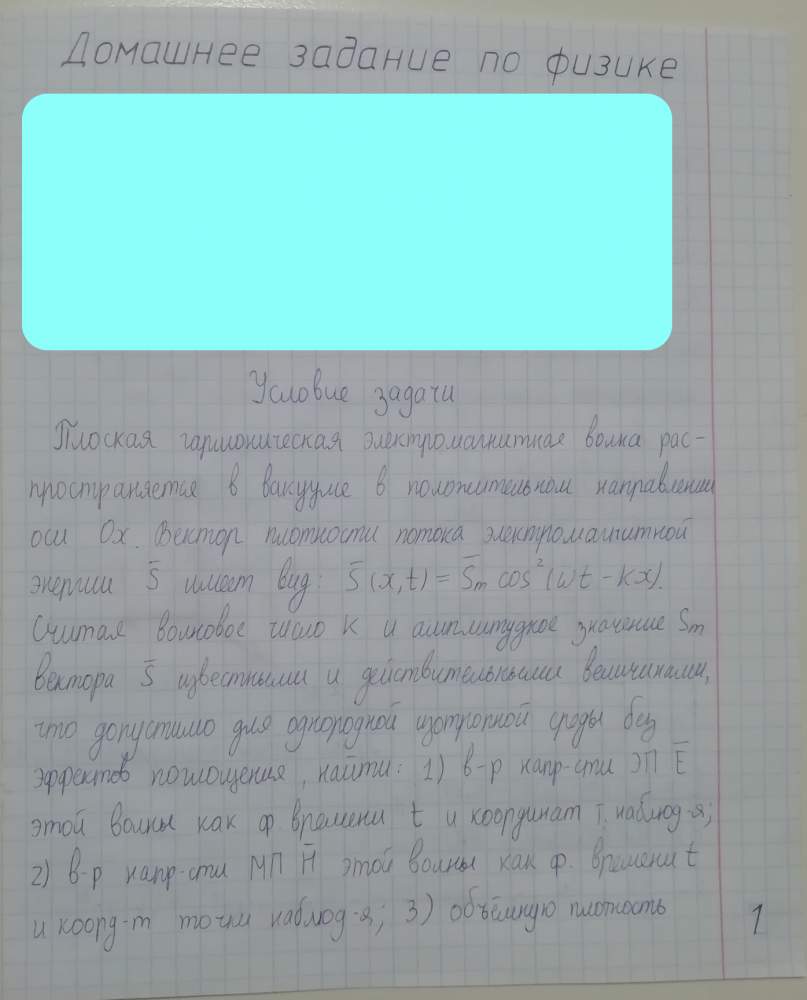 Домашнее задание по физике
Условие задачи
Плоская гармоническая электромагнитная волна рас-
пространяется в вакууме в положительном направлении
оси Ox. Вектор плотности потока электромагнитной
энергии S̄ имеет вид: S̄(x,t) = S̄m cos²(ωt - kx).
Считая волновое число K и амплитудное значение Sm
вектора S̄ известными и действительными величинами,
что допустимо для однородной изотропной среды без
эффектов поглощения, найти: 1) в-р напр-сти ЭП Ē
этой волны как ф. времени t и координат т. наблюд-я;
2) в-р напр-сти МП H̄ этой волны как ф. времени t
и коорд-т точки наблюд-я; 3) объёмную плотность
1